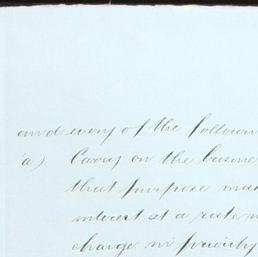 and every of the followin
(a) Carry on the busine
that purpose ma
interest at a rate n
charge in priority